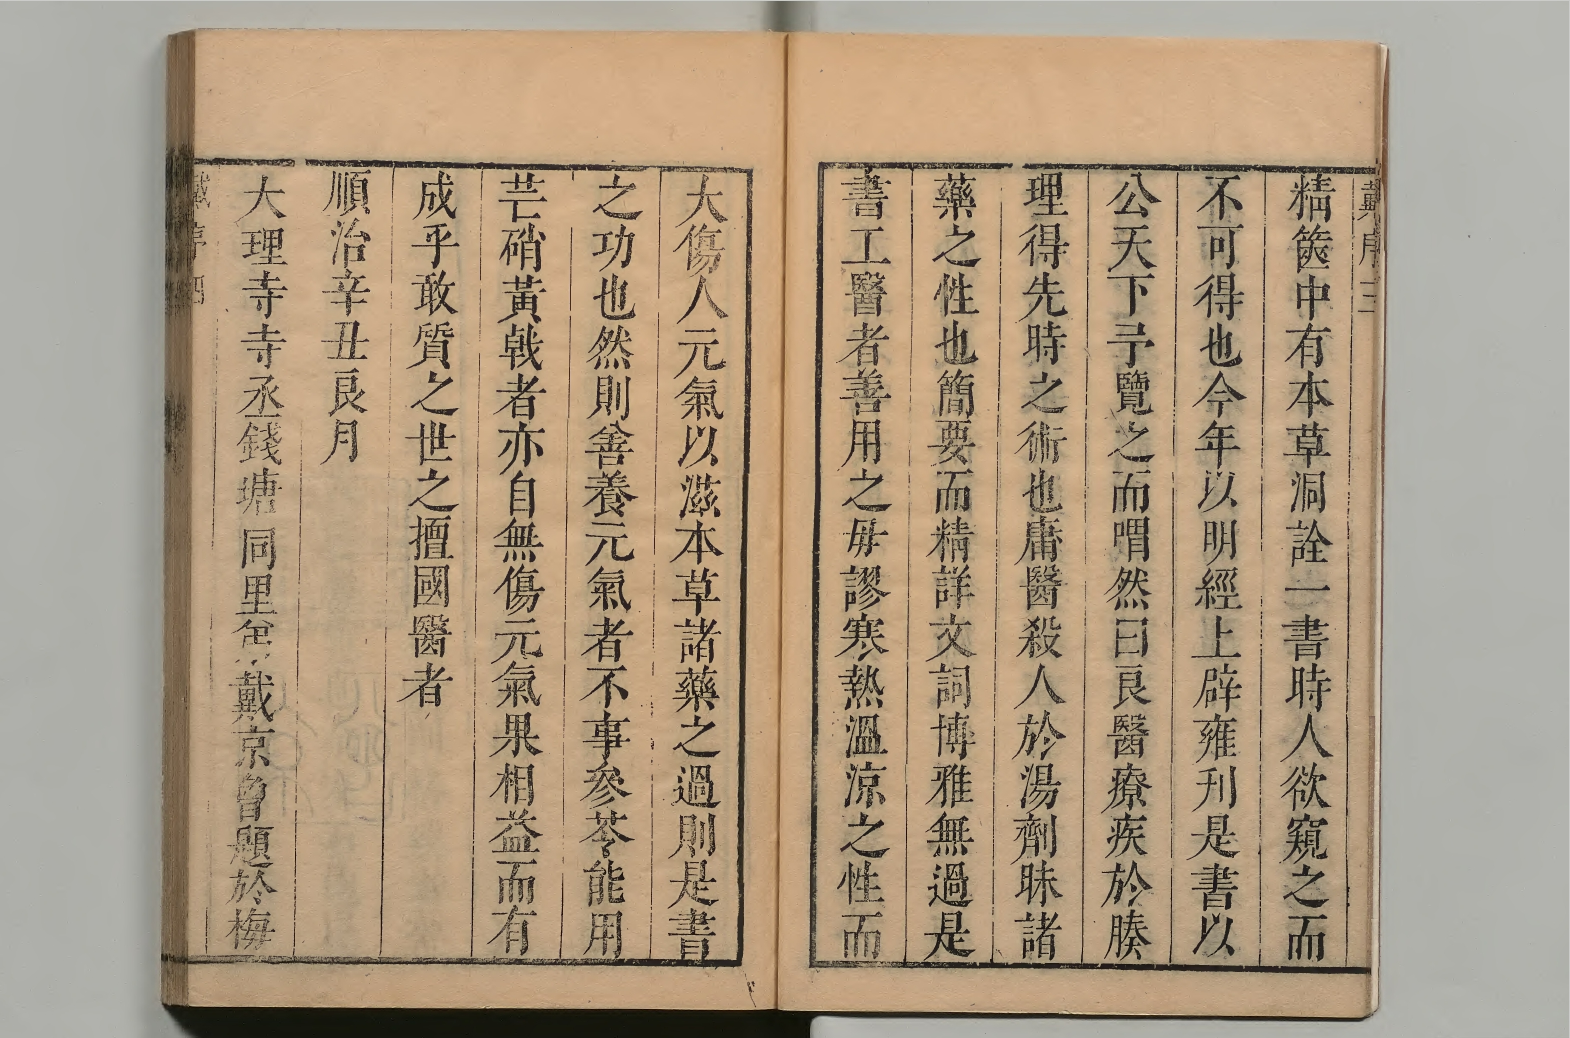 戴序三
精篋中有本草洞詮一書時人欲窺之而
不可得也今年以明經上辟雍刋是書以
公天下予覽之而喟然曰良醫療疾於腠
理得先時之術也庸醫殺人於湯劑昧諸
藥之性也簡要而精詳文詞博雅無過是
書工醫者善用之毋謬寒熱溫涼之性而
大傷人元氣以滋本草諸藥之過則是書
之功也然則善養元氣者不事參苓能用
芒硝黃戟者亦自無傷元氣果相益而有
成乎敢質之世之擅國醫者
順治辛丑良月
大理寺寺丞錢塘同里 戴京曾題於梅
戴序四